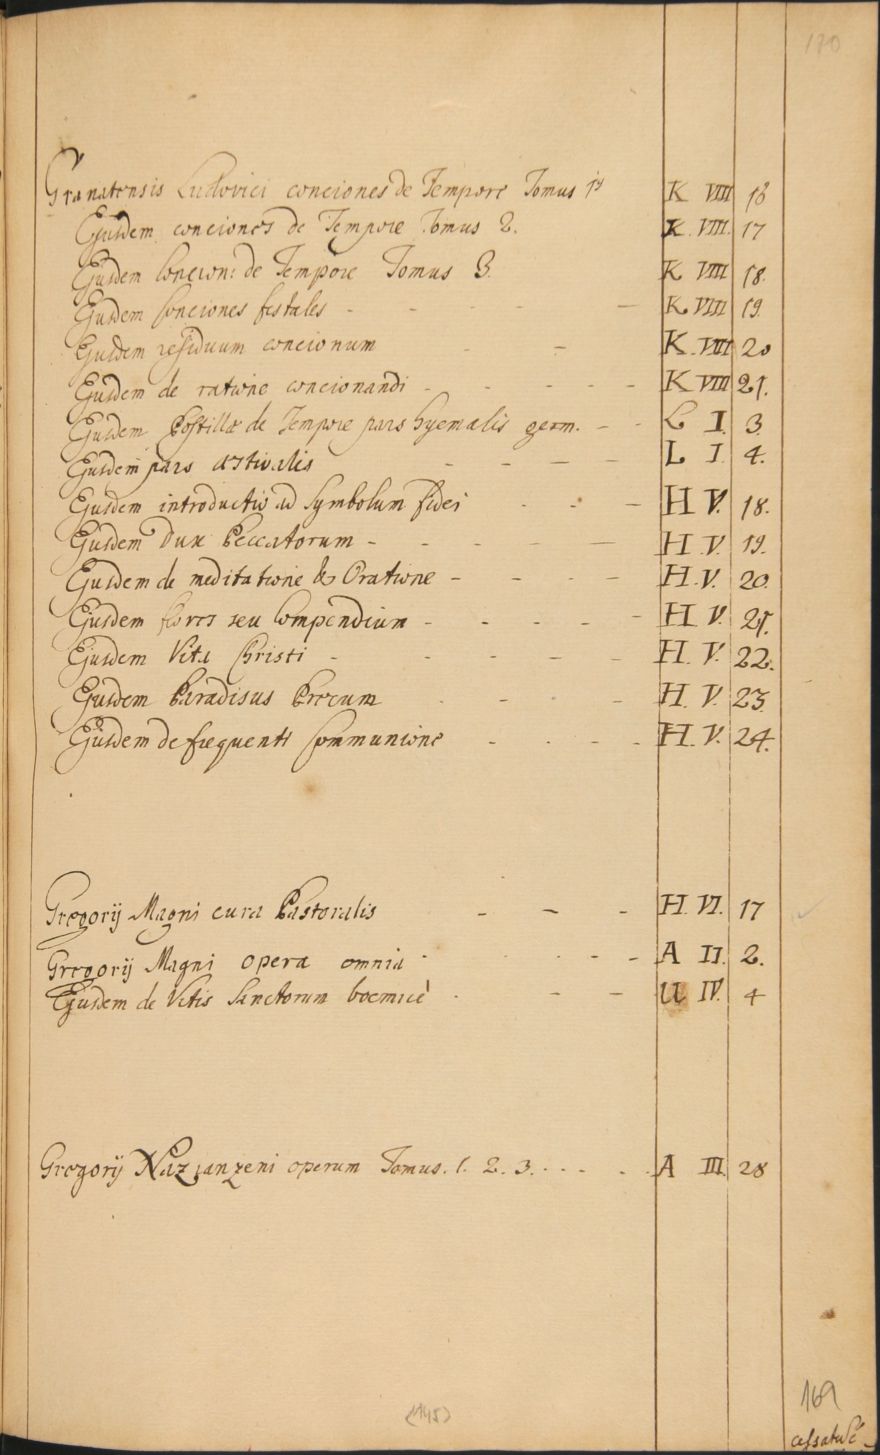 170
Granatensis Ludovici conciones de Tempore Tomus 1us K VIII 16
Ejusdem conciones de Tempore Tomus 2. K. VIII. 17
Ejusdem Concion: de Tempore Tomus 3. K VIII 18.
Ejusdem Conciones festales - - - - — K VIII 19.
Ejusdem residuum concionum - - K. VIII 20
Ejusdem de ratione concionandi - - - - - K VIII 21.
Ejusdem Postillæ de Tempore pars hyemalis germ. - - L I. 3.
Ejusdem pars æstivalis - - - - L I. 4.
Ejusdem introductio ad Symbolum fidei - - - H V. 18.
Ejusdem Dux Peccatorum - - - - — H. V. 19.
Ejusdem de meditatione & Oratione - - - - H. V. 20.
Ejusdem flores seu Compendium - - - - - H V. 21.
Ejusdem Vita Christi - - - - - H. V. 22.
Ejusdem Paradisus Precum - - - H. V. 23.
Ejusdem de frequenti Communione - - - - H. V. 24.
Gregorij Magni cura Pastoralis - - - H. VI. 17
Gregorij Magni opera omnia - - - - A II. 2.
Ejusdem de Vitis Sanctorum boemicè - - - U IV. 4
Gregorij Nazianzeni operum Tomus. 1. 2. 3. - - - - A III. 28
(145)
169